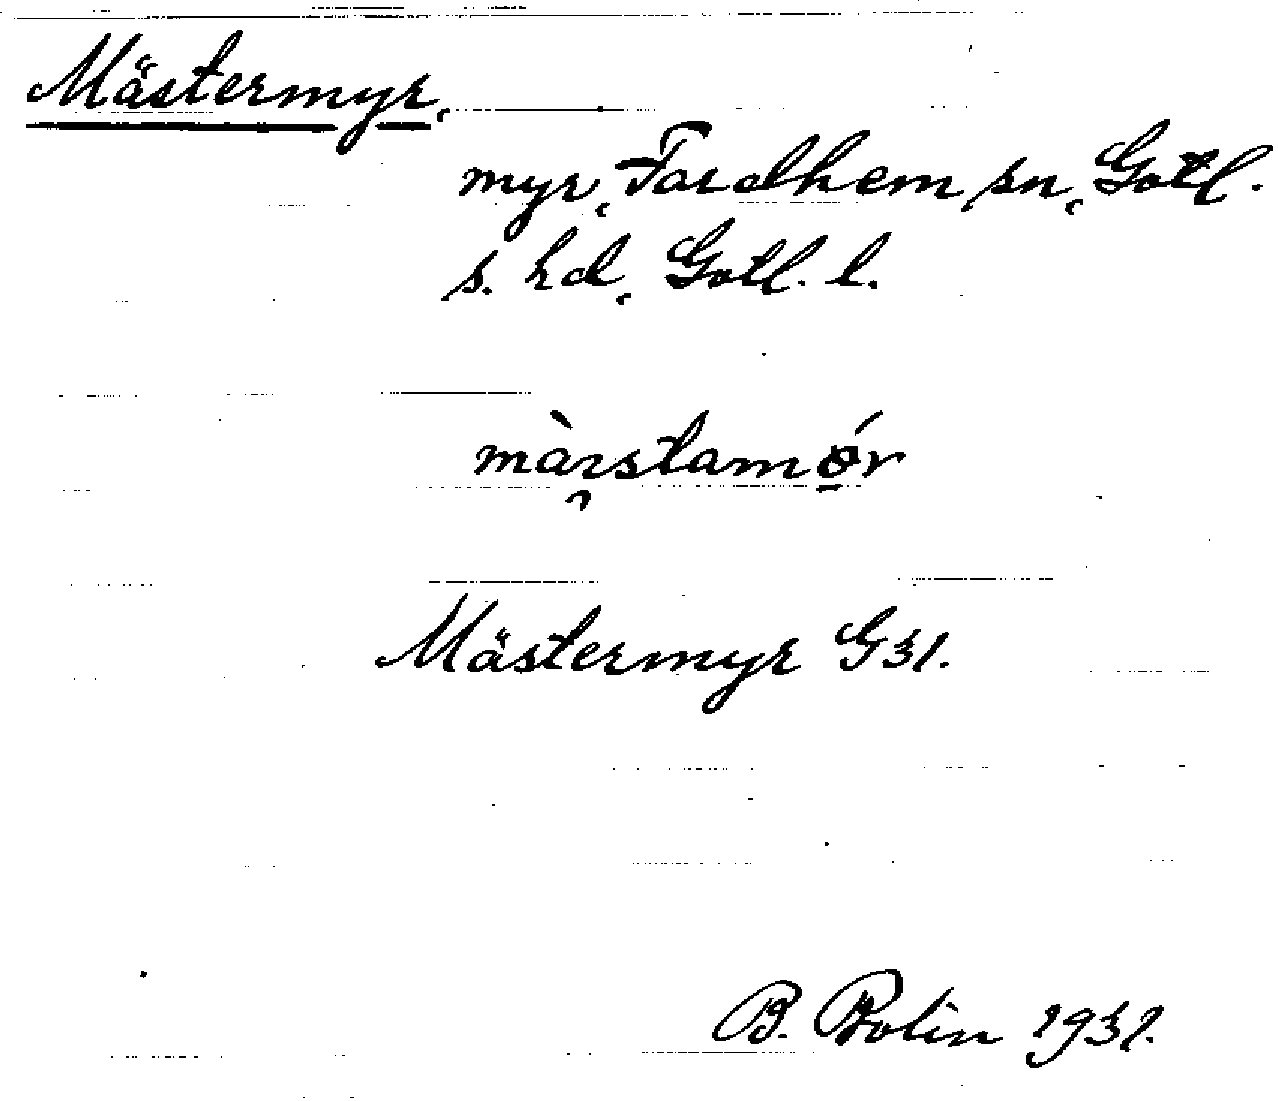 Mästermyr,
myr, Fardhem sn, Gotl.
s. hd, Gotl. l.
mà̯rstamǿ̠r
Mästermyr G 31.
B. Bolin 1931.